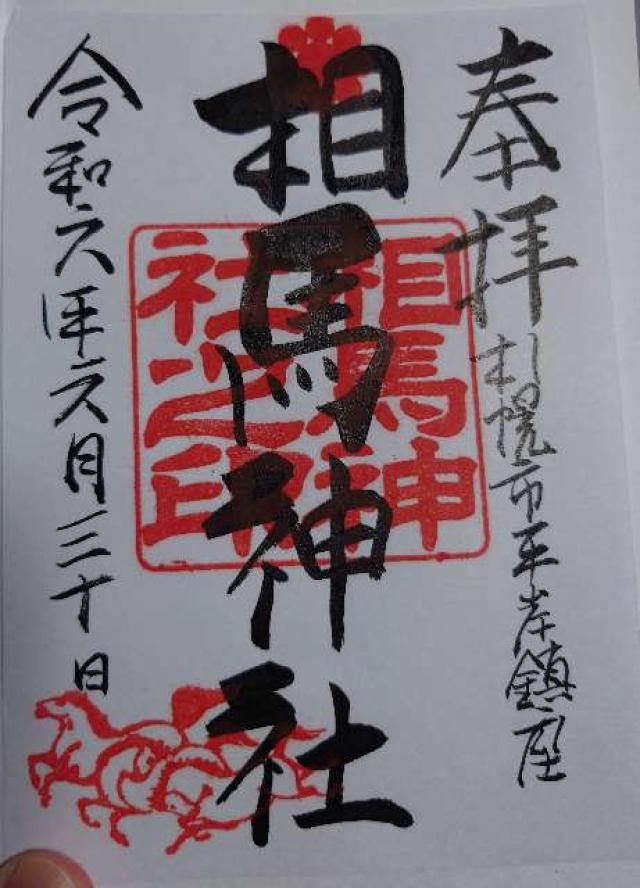 奉拝
札幌市平岸鎮座
相馬神社
相馬神
社之印
令和六年六月三十日